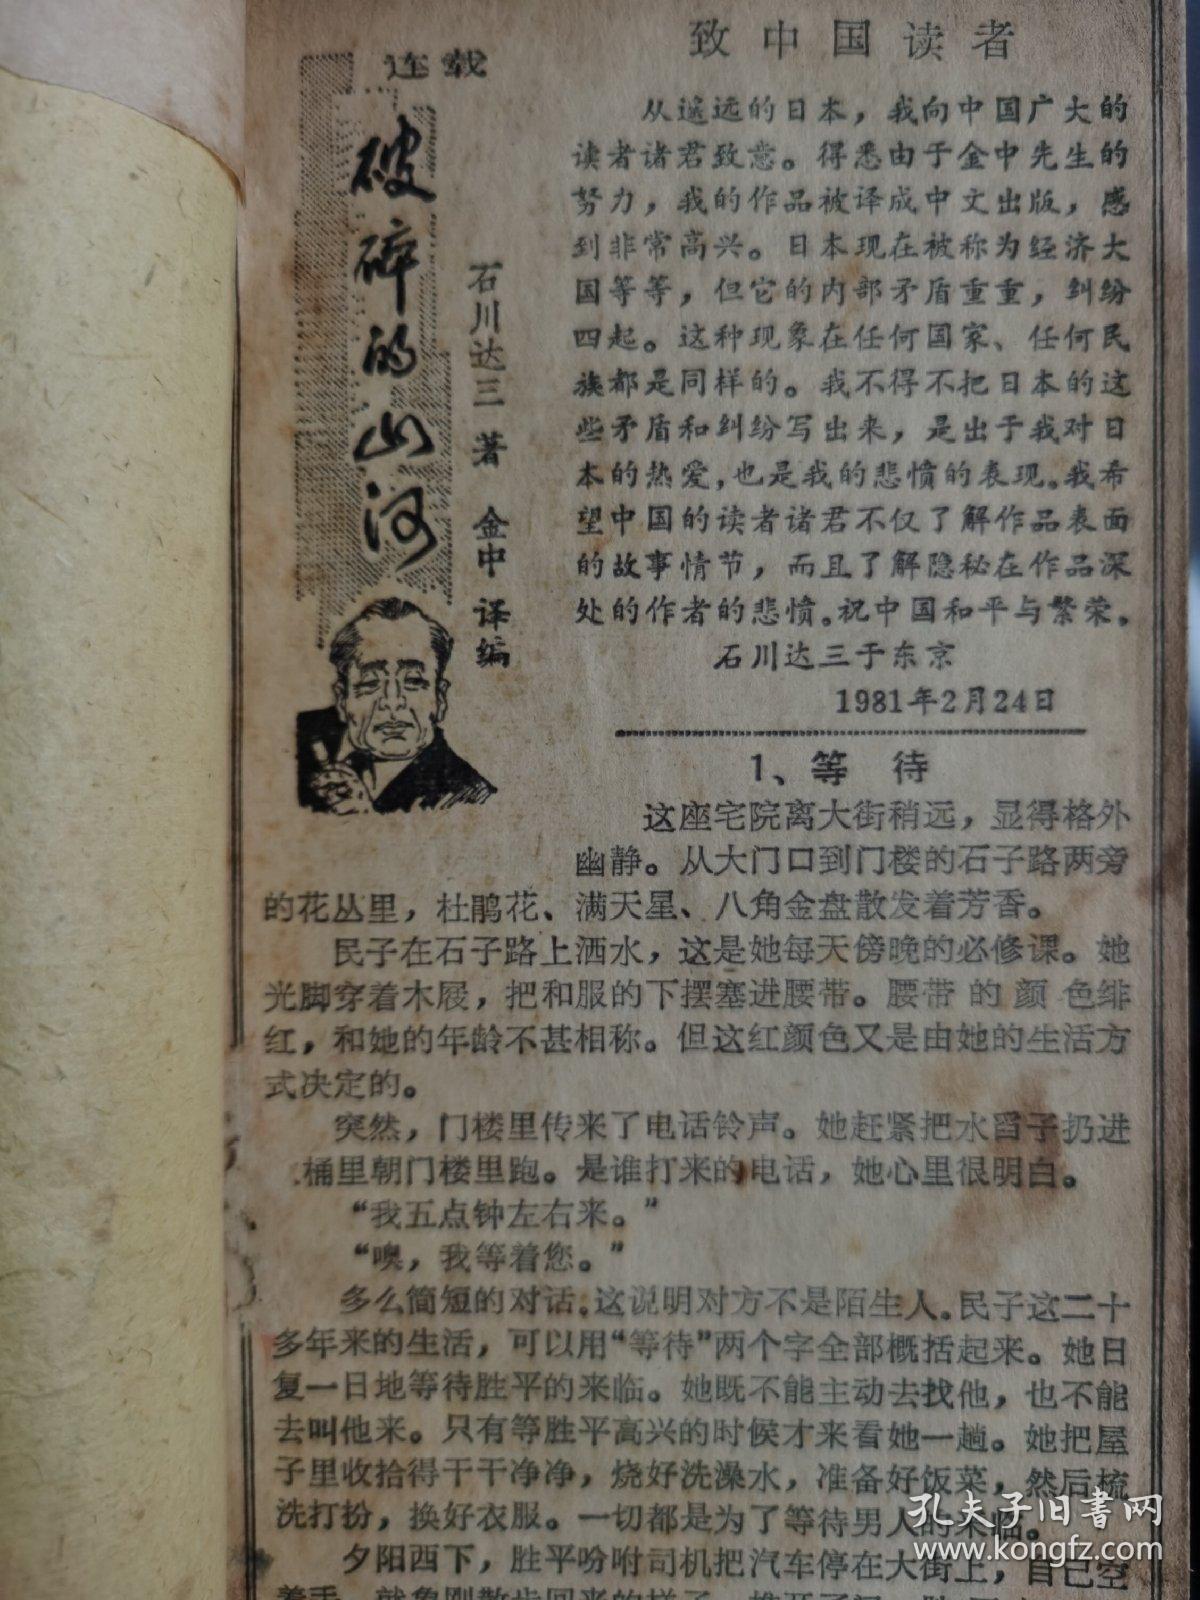 连载
破碎的山河
石川达三 著 金中 译编
致中国读者
从遥远的日本，我向中国广大的
读者诸君致意。得悉由于金中先生的
努力，我的作品被译成中文出版，感
到非常高兴。日本现在被称为经济大
国等等，但它的内部矛盾重重，纠纷
四起。这种现象在任何国家、任何民
族都是同样的。我不得不把日本的这
些矛盾和纠纷写出来，是出于我对日
本的热爱，也是我的悲愤的表现。我希
望中国的读者诸君不仅了解作品表面
的故事情节，而且了解隐秘在作品深
处的作者的悲愤。祝中国和平与繁荣。
石川达三于东京
1981年2月24日
1、等 待
这座宅院离大街稍远，显得格外
幽静。从大门口到门楼的石子路两旁
的花丛里，杜鹃花、满天星、八角金盘散发着芳香。
民子在石子路上洒水，这是她每天傍晚的必修课。她
光脚穿着木屐，把和服的下摆塞进腰带。腰带的颜色绯
红，和她的年龄不甚相称。但这红颜色又是由她的生活方
式决定的。
突然，门楼里传来了电话铃声。她赶紧把水舀子扔进
桶里朝门楼里跑。是谁打来的电话，她心里很明白。
“我五点钟左右来。”
“噢，我等着您。”
多么简短的对话。这说明对方不是陌生人。民子这二十
多年来的生活，可以用“等待”两个字全部概括起来。她日
复一日地等待胜平的来临。她既不能主动去找他，也不能
去叫他来。只有等胜平高兴的时候才来看她一趟。她把屋
子里收拾得干干净净，烧好洗澡水，准备好饭菜，然后梳
洗打扮，换好衣服。一切都是为了等待男人的来临。
夕阳西下，胜平吩咐司机把汽车停在大街上，自己空
着手，就象刚散步回来的样子，推开了门。
孔夫子旧书网
www.kongfz.com